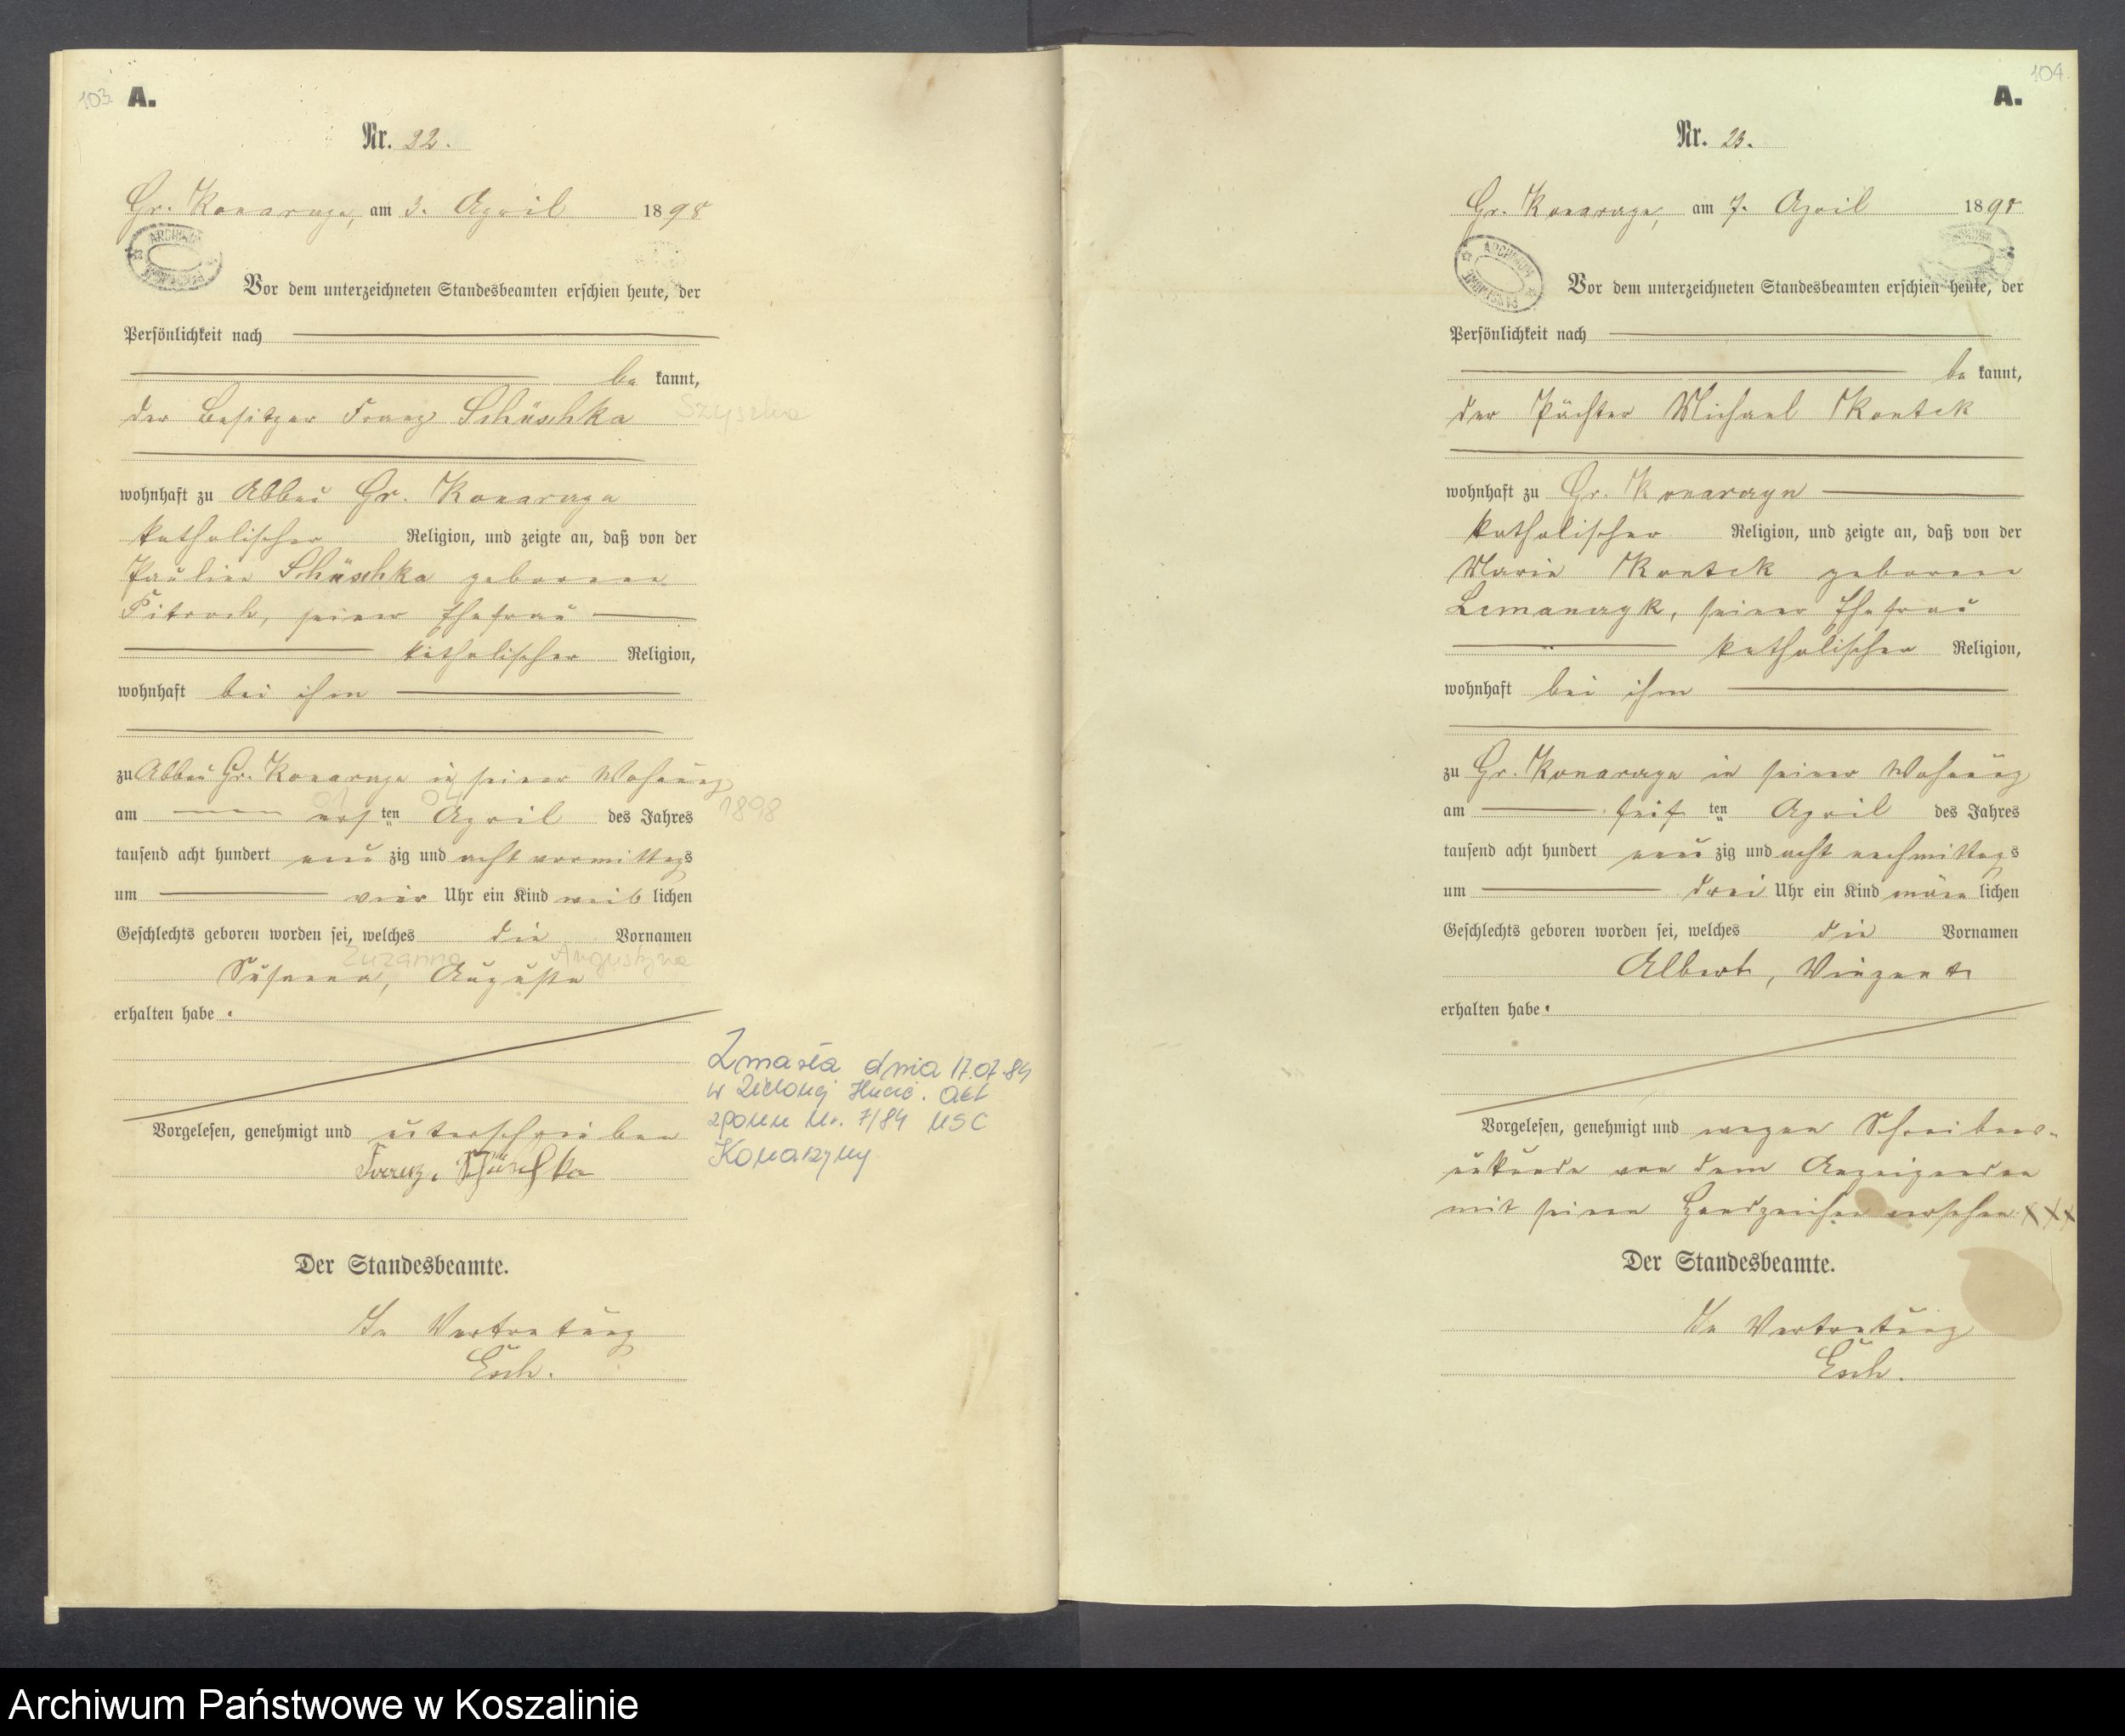 103
A.
Nr. 22.
Gr. Konarzyn, am 3. April 1898
ARCHIWUM
Vor dem unterzeichneten Standesbeamten erschien heute, der
Persönlichkeit nach
be kannt,
der Besitzer Franz Schüschka Szyszka
wohnhaft zu Abbau Gr. Konarzyn
katholischer Religion, und zeigte an, daß von der
Pauline Schüschka geborenen
seiner Ehefrau
katholischer Religion,
wohnhaft bei ihm
zu Abbau Gr. Konarzyn in seiner Wohnung
01 04 1898
am ersten April des Jahres
tausend acht hundert neunzig und acht vormittags
um vier Uhr ein Kind weiblichen
Geschlechts geboren worden sei, welches die Vornamen
Zuzanna Augustyna
Susanna, Auguste
erhalten habe.
Zmarła dnia 17.07.84
w Zielonej Hucie. Akt
zgonu Nr. 7/84 USC
Konarzyny
Vorgelesen, genehmigt und unterschrieben
Franz Schüschka
Der Standesbeamte.
In Vertretung
Esch.
104
A.
Nr. 23.
Gr. Konarzyn, am 7. April 1898
ARCHIWUM
Vor dem unterzeichneten Standesbeamten erschien heute, der
Persönlichkeit nach
be kannt,
der Pächter Michael Kontek
wohnhaft zu Gr. Konarzyn
katholischer Religion, und zeigte an, daß von der
Marie Kontek geborene
Lemanczyk, seiner Ehefrau
katholischer Religion,
wohnhaft bei ihm
zu Gr. Konarzyn in seiner Wohnung
am fünften April des Jahres
tausend acht hundert neunzig und acht nachmittags
um drei Uhr ein Kind männlichen
Geschlechts geboren worden sei, welches die Vornamen
Albert, Vinzent
erhalten habe.
Vorgelesen, genehmigt und wegen Schreibens-
unkunde von dem Anzeigenden
mit seinen Handzeichen versehen. XXX
Der Standesbeamte.
In Vertretung
Esch.
Archiwum Państwowe w Koszalinie